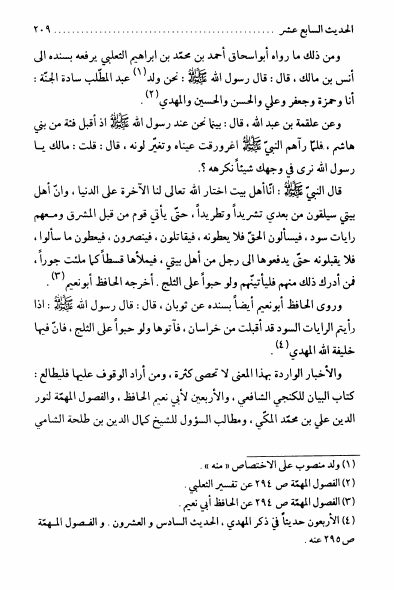 الحديث السابع عشر ........................................ ٢٠٩
ومن ذلك ما رواه أبو اسحاق أحمد بن محمّد بن ابراهيم الثعلبي يرفعه بسنده الى
أنس بن مالك ، قال : قال رسول الله ﷺ : نحن ولد(١) عبد المطّلب سادة الجنّة :
أنا وحمزة وجعفر وعلي والحسن والحسين والمهدي(٢).
وعن علقمة بن عبد الله ، قال : بينما نحن عند رسول الله ﷺ اذ أقبل فئة من بني
هاشم ، فلمّا رآهم النبيّ ﷺ اغرورقت عيناه وتغيّر لونه ، قال : قلت : مالك يا
رسول الله نرى في وجهك شيئاً نكرهه ؟.
قال النبيّ ﷺ : انّا أهل بيت اختار الله تعالى لنا الآخرة على الدنيا ، وانّ أهل
بيتي سيلقون من بعدي تشريداً وتطريداً ، حتّى يأتي قوم من قبل المشرق ومعهم
رايات سود ، فيسألون الحقّ فلا يعطونه ، فيقاتلون ، فينصرون ، فيعطون ما سألوا ،
فلا يقبلونه حتّى يدفعوها الى رجل من أهل بيتي ، فيملأها قسطاً كما ملئت جوراً ،
فمن أدرك ذلك منهم فليأتينّهم ولو حبواً على الثلج . أخرجه الحافظ أبو نعيم(٣).
وروى الحافظ أبو نعيم أيضاً بسنده عن ثوبان ، قال : قال رسول الله ﷺ : اذا
رأيتم الرايات السود قد أقبلت من خراسان ، فآتوها ولو حبواً على الثلج ، فانّ فيها
خليفة الله المهدي(٤).
والأخبار الواردة بهذا المعنى لا تحصى كثرة ، ومن أراد الوقوف عليها فليطالع :
كتاب البيان للكنجي الشافعي ، والأربعين لأبي نعيم الحافظ ، والفصول المهمّة لنور
الدين علي بن محمّد المكّي ، ومطالب السؤول للشيخ كمال الدين بن طلحة الشامي
(١) ولد منصوب على الاختصاص « منه » .
(٢) الفصول المهمّة ص ٢٩٤ عن تفسير الثعلبي .
(٣) الفصول المهمّة ص ٢٩٤ عن الحافظ أبي نعيم .
(٤) الأربعون حديثاً في ذكر المهدي ، الحديث السادس و العشرون . و الفصول المهمّة
ص ٢٩٥ عنه .